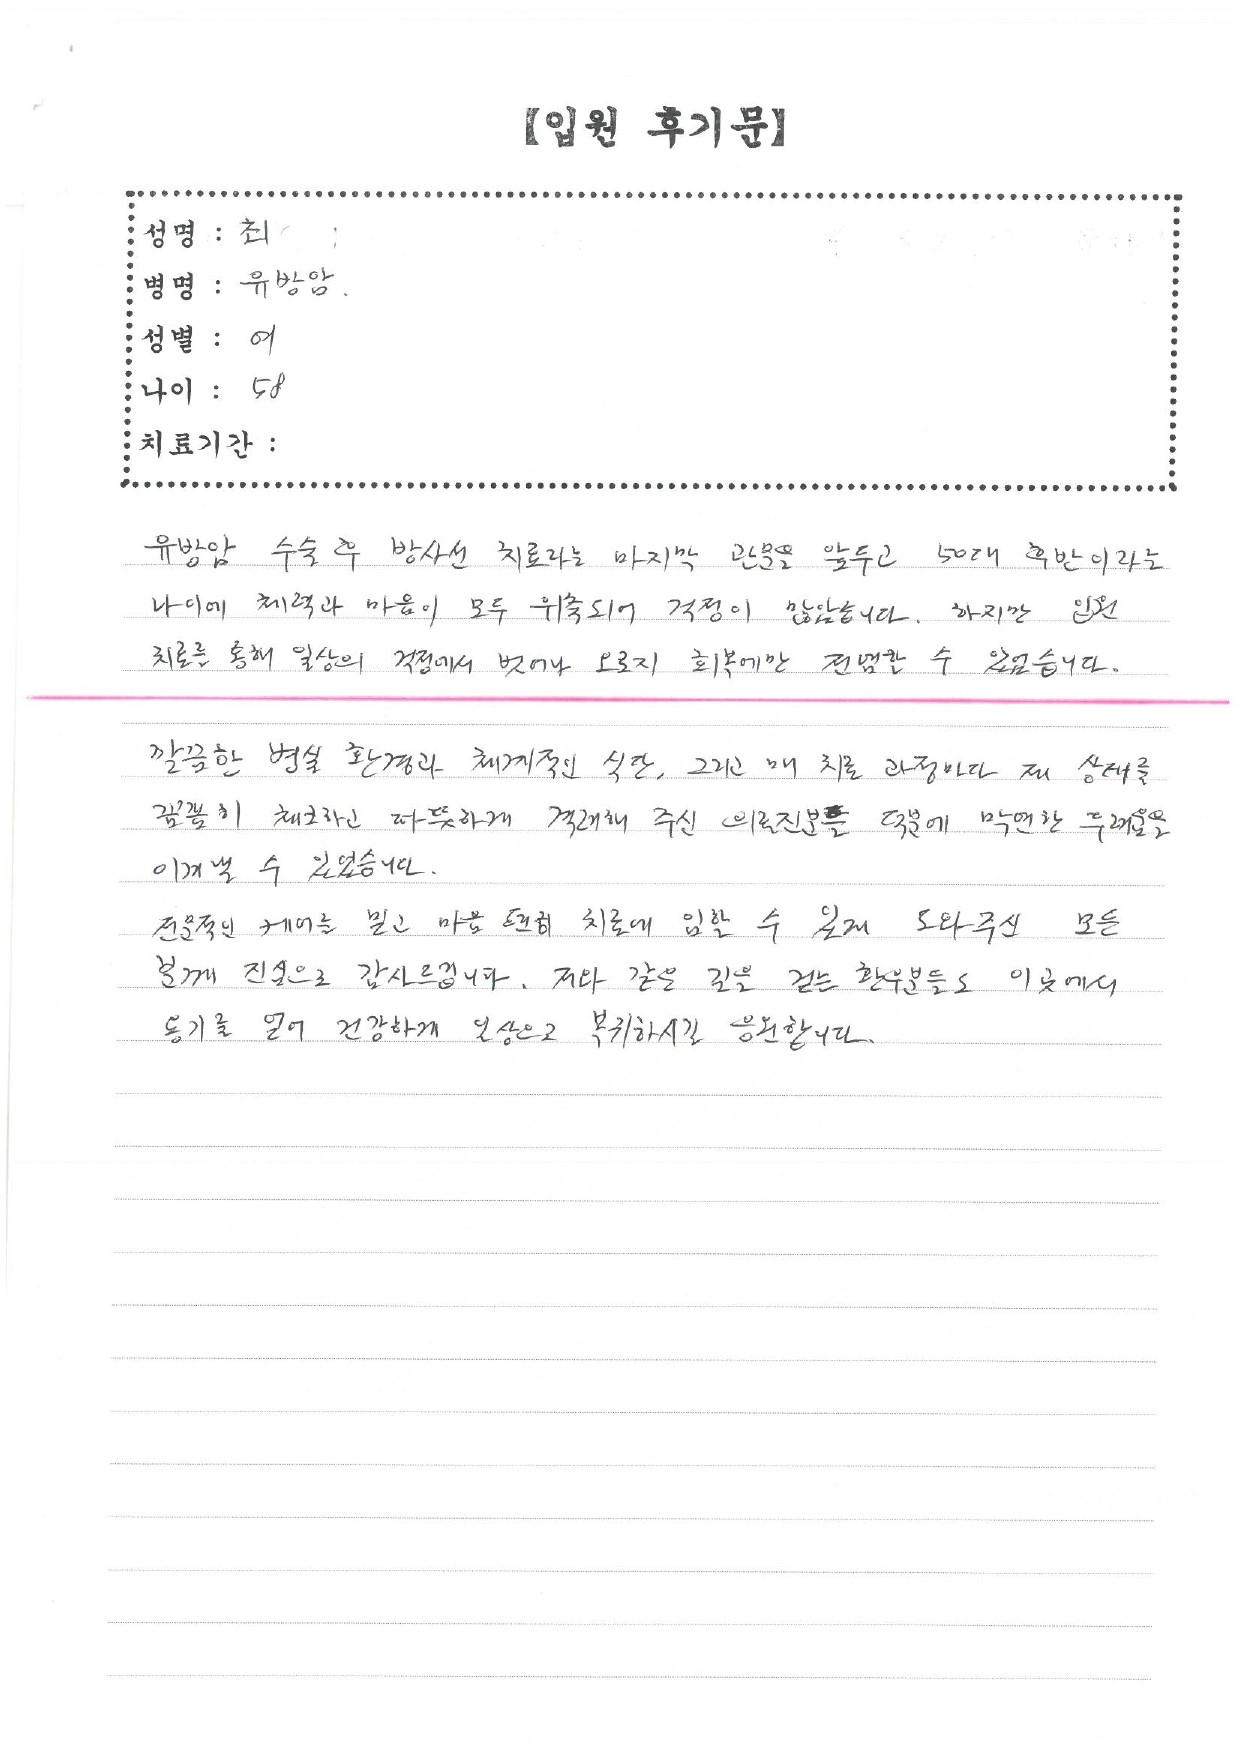 【입원 후기문】
성명 : 최
병명 : 유방암.
성별 : 여
나이 : 58
치료기간 :
유방암 수술 후 방사선 치료라는 마지막 관문을 앞두고 50대 후반이라는
나이에 체력과 마음이 모두 위축되어 걱정이 많았습니다. 하지만 입원
치료를 통해 일상의 걱정에서 벗어나 오로지 회복에만 전념할 수 있었습니다.
깔끔한 병실 환경과 체계적인 식단, 그리고 매 치료 과정마다 제 상태를
꼼꼼히 체크하고 따뜻하게 격려해 주신 의료진분들 덕분에 막연한 두려움을
이겨낼 수 있었습니다.
전문적인 케어를 믿고 마음 편히 치료에 임할 수 있게 도와주신 모든
분께 진심으로 감사드립니다. 저와 같은 길을 걷는 환우분들도 이곳에서
용기를 얻어 건강하게 일상으로 복귀하시길 응원합니다.